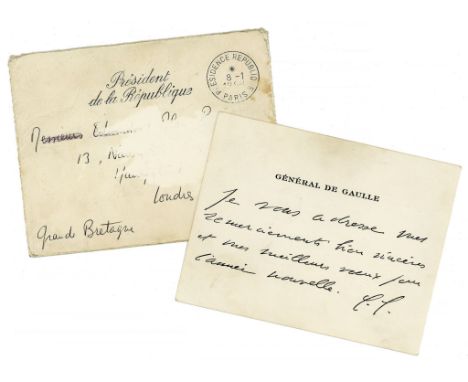 Président
de la République
PRESIDENCE REPUBLIQUE
8-1
PARIS
Messieurs
13,
Londres
Grande Bretagne
GÉNÉRAL DE GAULLE
Je vous adresse mes
remerciements bien sincères
et mes meilleurs voeux pour
l'année nouvelle.